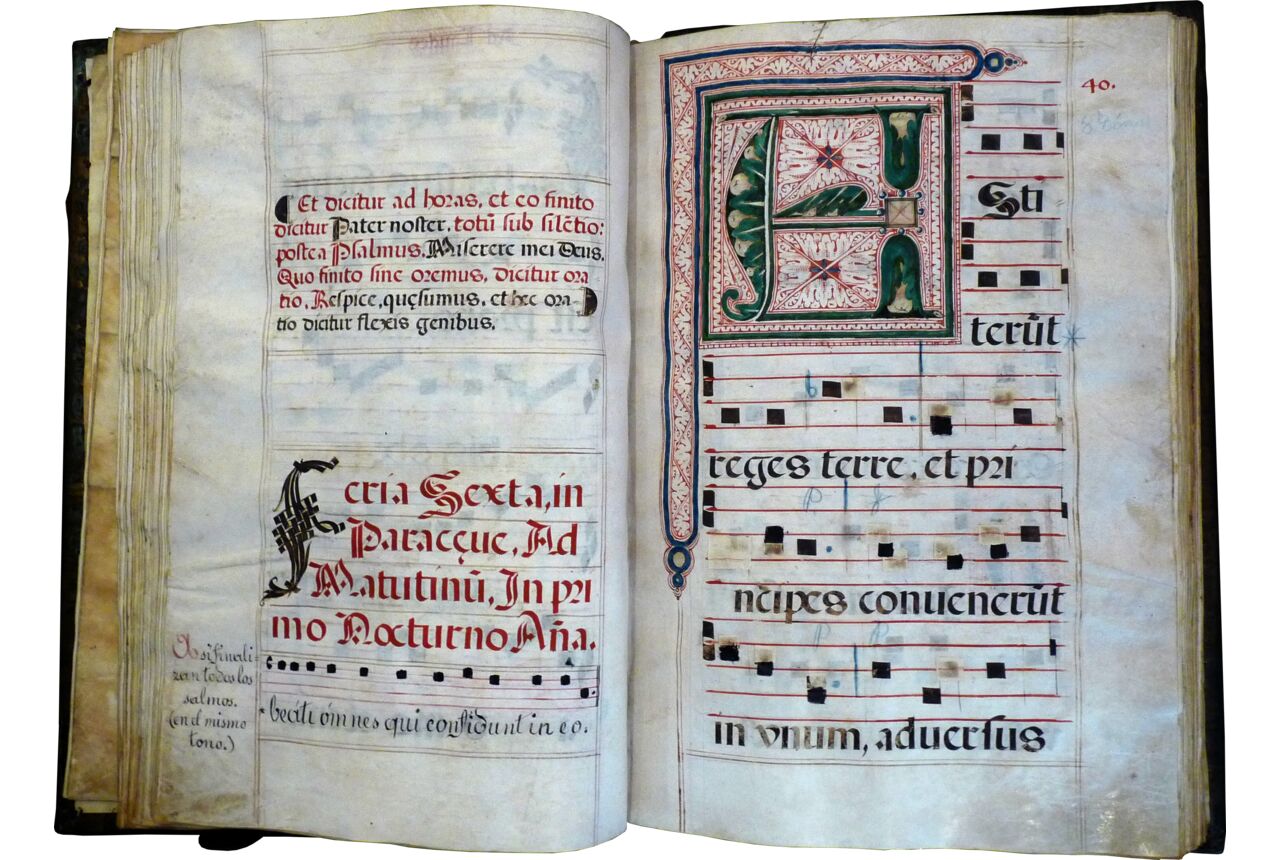 Et dicitur ad horas, et eo finito
dicitur Pater noster, totũ sub silẽtio:
postea Psalmus. Miserere mei Deus.
Quo finito sine oremus, dicitur ora
tio. Respice, quęsumus, et hec ora-
tio dicitur flexis genibus.
Feria Sexta, in
Parascęue. Ad
Matutinũ. In pri
mo Nocturno Aña.
Asi finali=
zan todos los
salmos.
(en el mismo
tono.)
beati omnes qui confidunt in eo.
40.
ASti
terũt *
reges terre, et pri
ncipes conuenerũt
in vnum, aduersus